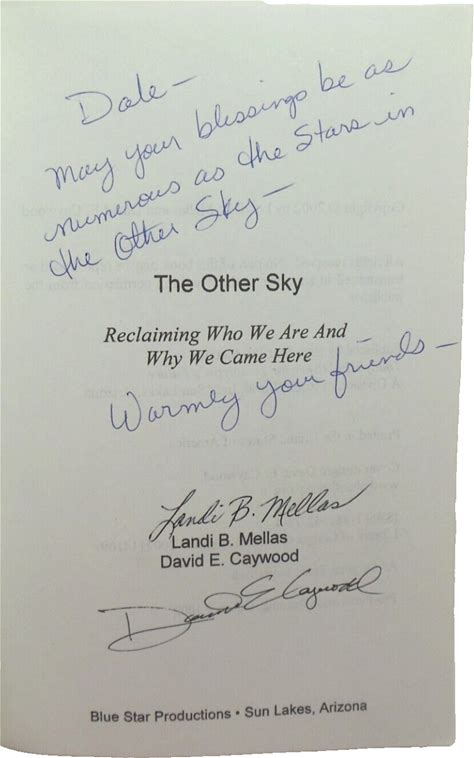 Dale —
May your blessings be as
numerous as the Stars in
the Other Sky —
The Other Sky
Reclaiming Who We Are And
Why We Came Here
Warmly your friends —
Landi B. Mellas
Landi B. Mellas
David E. Caywood
David E Caywood
Blue Star Productions • Sun Lakes, Arizona